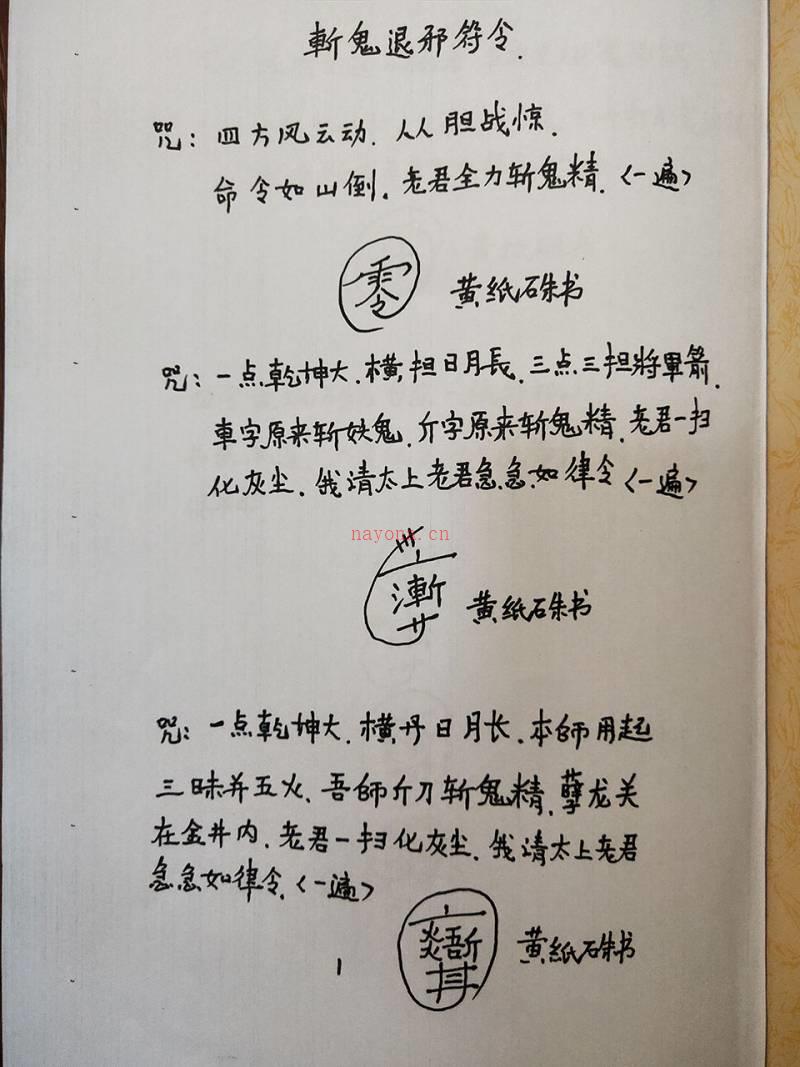 斬鬼退邪符令.
咒：四方风云动．人人胆战惊．
命令如山倒．老君全力斩鬼精．〈一遍〉
零 黄纸硃书
咒：一点乾坤大．横担日月長．三点三担將軍箭．
車字原来斩妖鬼．斤字原来斩鬼精．老君一扫
化灰尘．俄请太上老君急急如律令〈一遍〉
nayona.cn
黄纸硃书
咒：一点乾坤大．横丹日月长．本師用起
三昧并五火．吾師斤刀斩鬼精．孽龙关
在金井内．老君一扫化灰尘．俄请太上老君
急急如律令．〈一遍〉
黄纸硃书
1